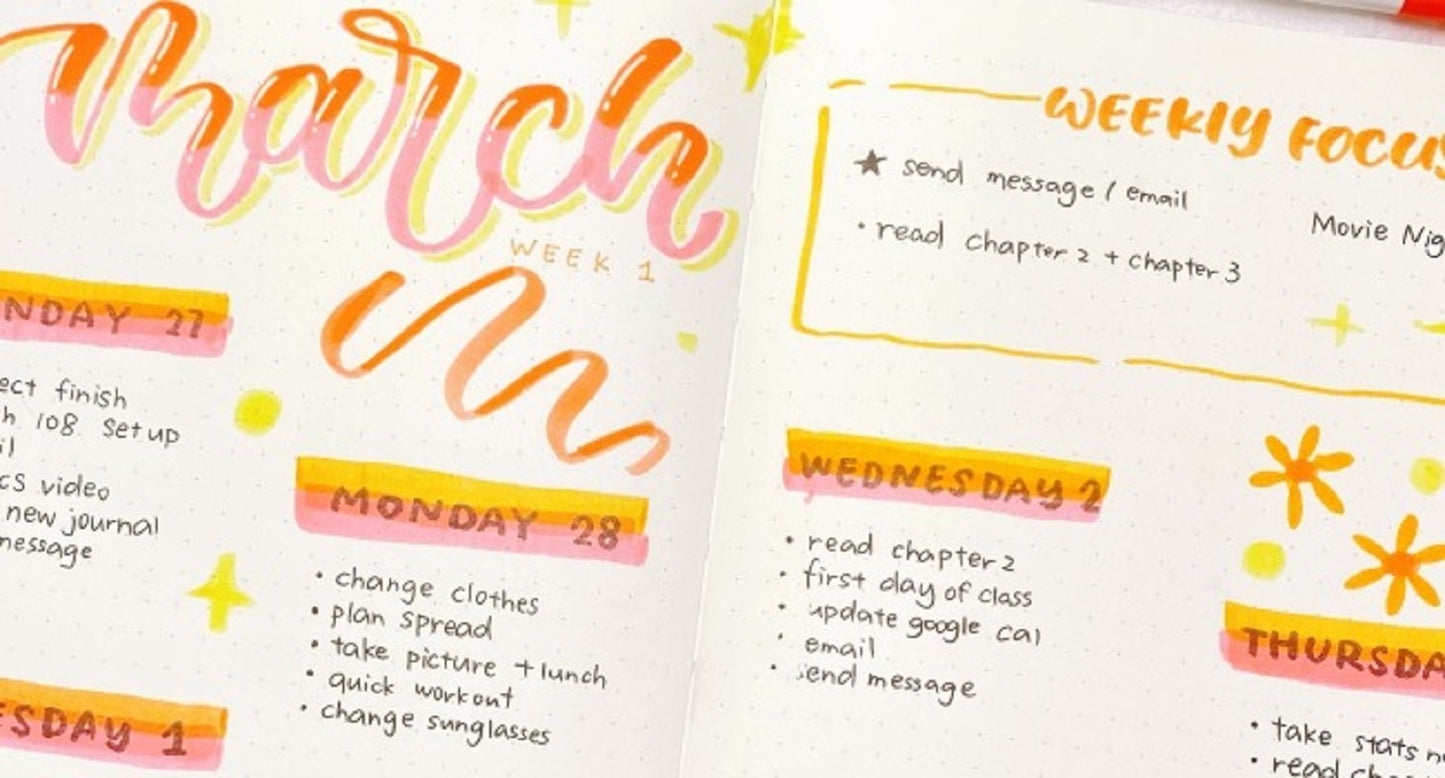 march
WEEK 1
NDAY 27
ect finish
h 108 setup
il
cs video
new journal
message
ESDAY 1
MONDAY 28
• change clothes
• plan spread
• take picture + lunch
• quick workout
• change sunglasses
WEEKLY FOCUS
★ send message / email
• read chapter 2 + chapter 3
Movie Nig
WEDNESDAY 2
• read chapter 2
• first day of class
• update google cal
• email
• send message
THURSDA
• take stats n
• read cha